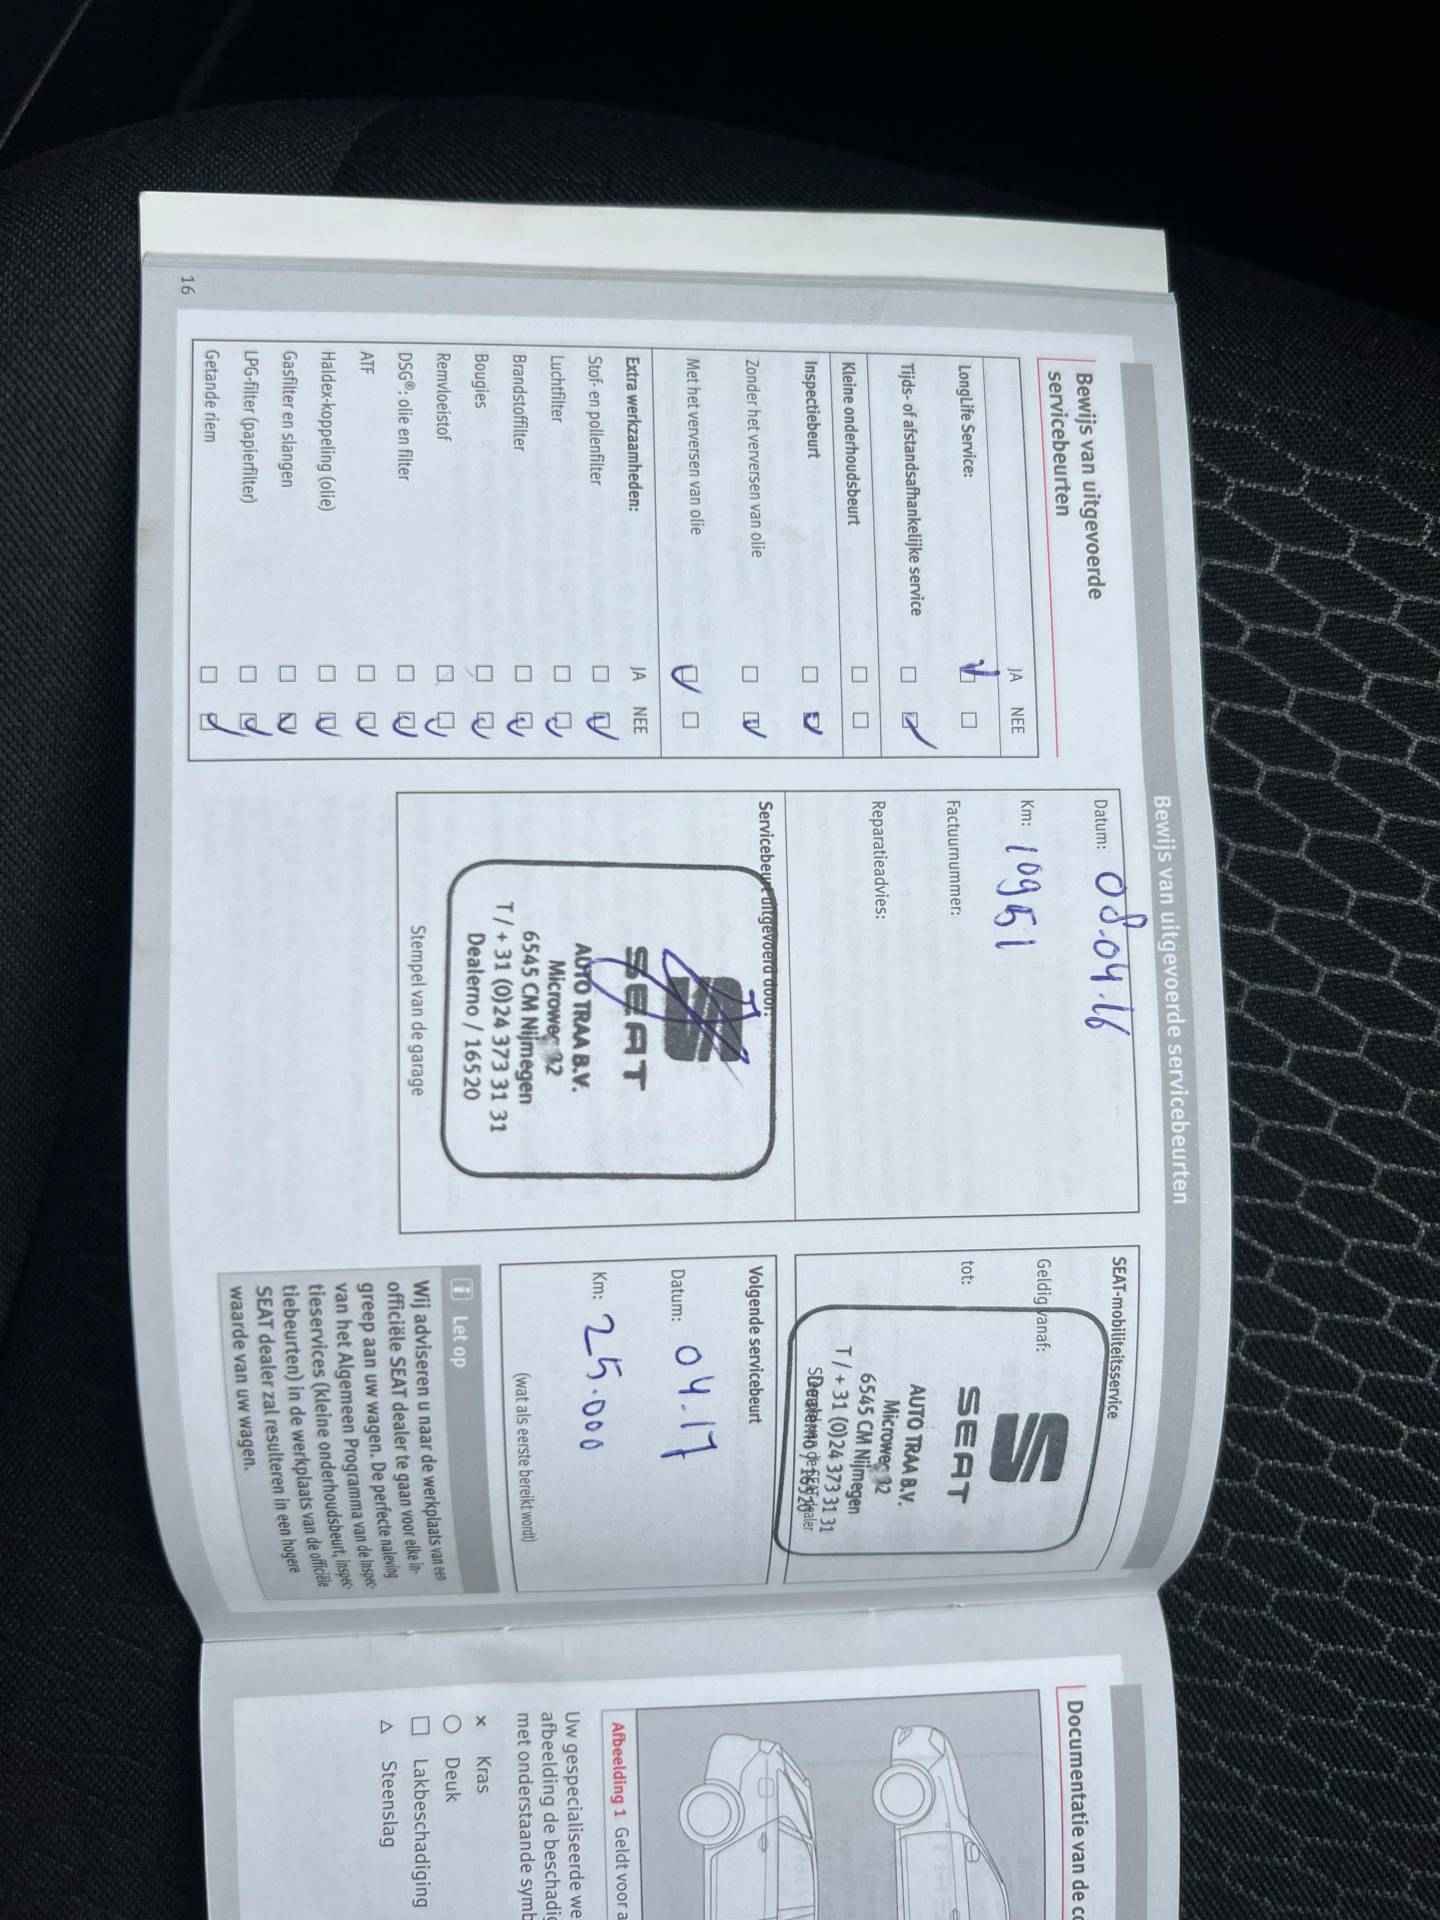 Bewijs van uitgevoerde servicebeurten
Bewijs van uitgevoerde
servicebeurten
JA NEE
LongLife Service:
Tijds- of afstandsafhankelijke service
Kleine onderhoudsbeurt
Inspectiebeurt
Zonder het verversen van olie
Met het verversen van olie
Extra werkzaamheden: JA NEE
Stof- en pollenfilter
Luchtfilter
Brandstoffilter
Bougies
Remvloeistof
DSG®: olie en filter
ATF
Haldex-koppeling (olie)
Gasfilter en slangen
LPG-filter (papierfilter)
Getande riem
16
Datum: 08.04.16
Km: 10951
Factuurnummer:
Reparatieadvies:
Servicebeurt uitgevoerd door:
SEAT
AUTO TRAA B.V.
Microweg
6545 CM Nijmegen
T / + 31 (0)24 373 31 31
Dealerno / 16520
Stempel van de garage
SEAT-mobiliteitsservice
Geldig vanaf:
tot:
SEAT
AUTO TRAA B.V.
Microweg
6545 CM Nijmegen
T / + 31 (0)24 373 31 31
Dealerno / 16520
Volgende servicebeurt
Datum: 04.17
Km: 25.000
(wat als eerste bereikt wordt)
i Let op
Wij adviseren u naar de werkplaats van een
officiële SEAT dealer te gaan voor elke in-
greep aan uw wagen. De perfecte naleving
van het Algemeen Programma van de Inspec-
tieservices (kleine onderhoudsbeurt, inspec-
tiebeurten) in de werkplaats van de officiële
SEAT dealer zal resulteren in een hogere
waarde van uw wagen.
Documentatie van de
Afbeelding 1 Geldt voor
Uw gespecialiseerde
afbeelding de
met onderstaande
× Kras
○ Deuk
□ Lakbeschadiging
△ Steenslag